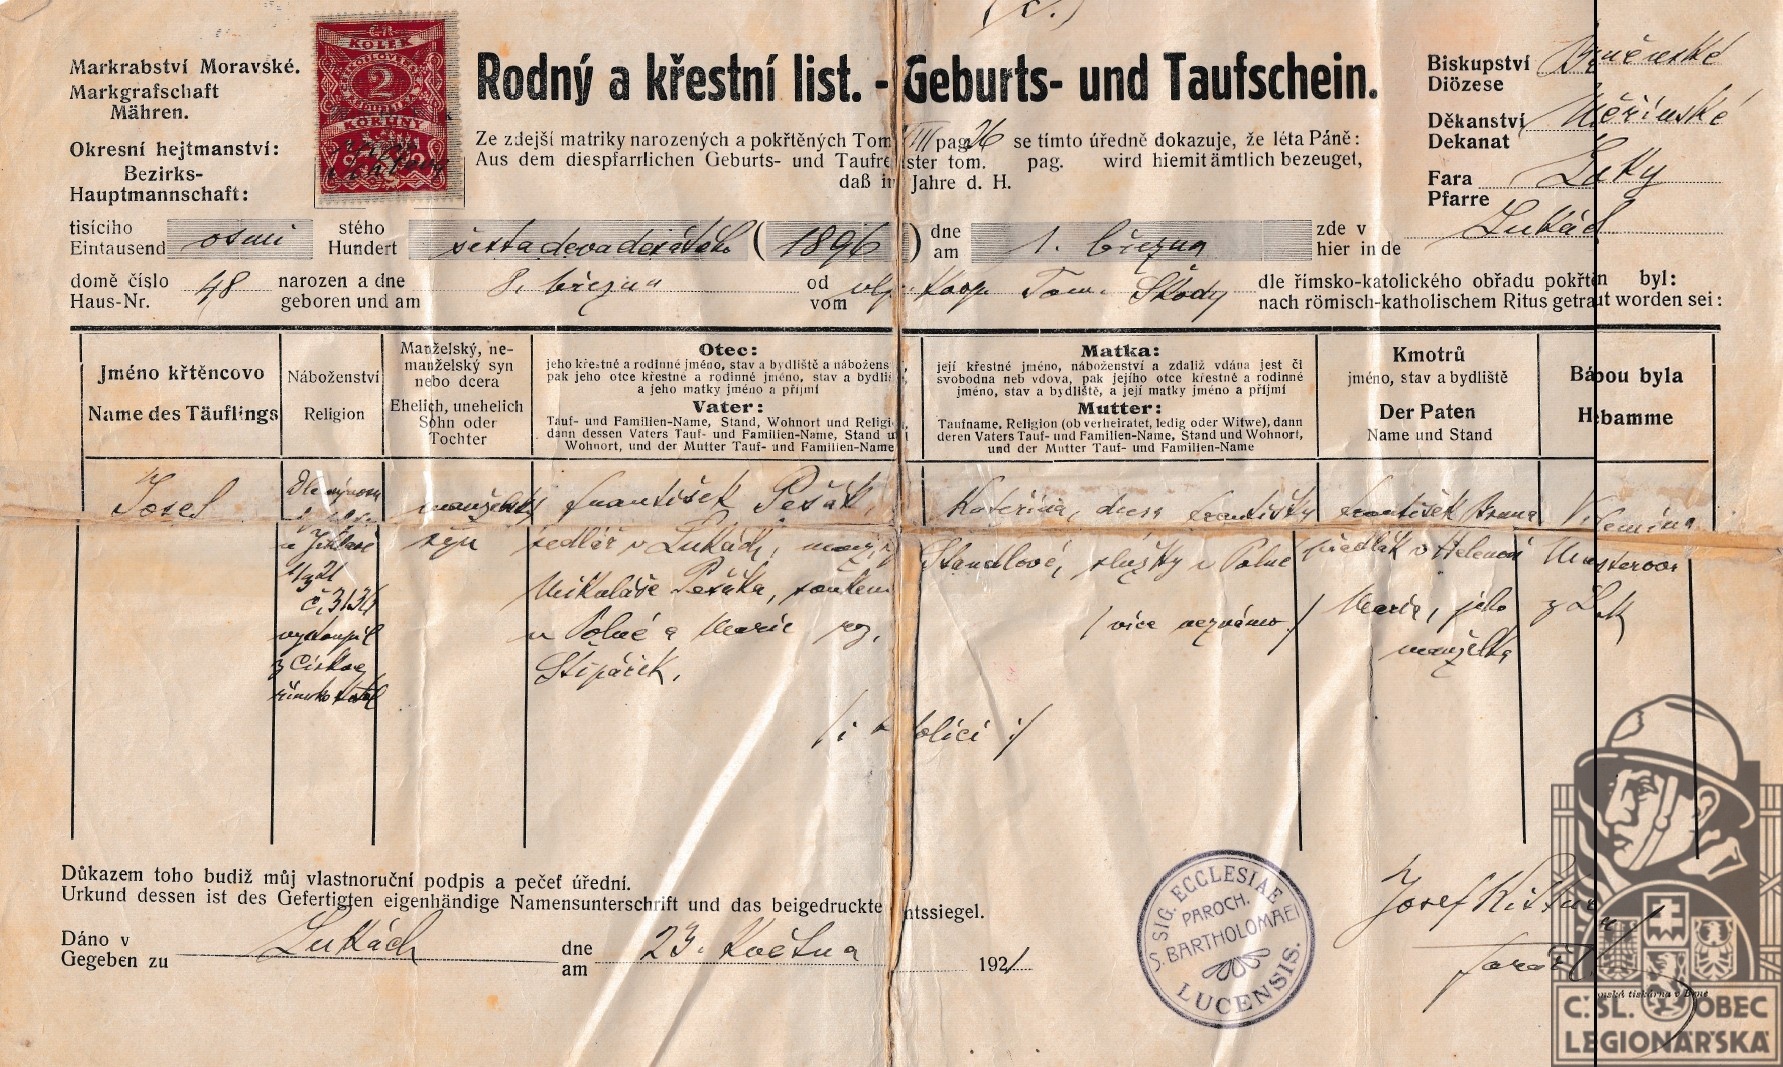 Č.S.
KOLEK
2
KORUNY
Markrabství Moravské.
Markgrafschaft
Mähren.
Okresní hejtmanství:
Bezirks-
Hauptmannschaft:
Rodný a křestní list. - Geburts- und Taufschein.
Ze zdejší matriky narozených a pokřtěných Tom VIII pag 26 se tímto úředně dokazuje, že léta Páně:
Aus dem diespfarrlichen Geburts- und Taufre ister tom. pag. wird hiemit ämtlich bezeuget,
daß i Jahre d. H.
Biskupství Brněnské
Diözese
Děkanství Měřínské
Dekanat
Fara Luky
Pfarre
tisícího osmi stého šestadevadesátého (1896) dne 1. března zde v Lukách
Eintausend Hundert am hier in de
domě číslo 48 narozen a dne 8. března od vlp. koop. Tom. Škody dle římsko-katolického obřadu pokřtěn byl:
Haus-Nr. geboren und am vom nach römisch-katholischem Ritus getrauft worden sei:
Jméno křtěncovo
Name des Täuflings
Náboženství
Religion
Manželský, ne-
manželský syn
nebo dcera
Ehelich, unehelich
Sohn oder
Tochter
Otec:
jeho křestné a rodinné jméno, stav a bydliště a nábožens
pak jeho otce křestné a rodinné jméno, stav a bydli
a jeho matky jméno a příjmí
Vater:
Tauf- und Familien-Name, Stand, Wohnort und Religi
dann dessen Vaters Tauf- und Familien-Name, Stand u
Wohnort, und der Mutter Tauf- und Familien-Name
Matka:
její křestné jméno, náboženství a zdaliž vdána jest či
svobodna neb vdova, pak jejího otce křestné a rodinné
jméno, stav a bydliště, a její matky jméno a příjmí
Mutter:
Taufname, Religion (ob verheiratet, ledig oder Witwe), dann
deren Vaters Tauf- und Familien-Name, Stand und Wohnort,
und der Mutter Tauf- und Familien-Name
Kmotrů
jméno, stav a bydliště
Der Paten
Name und Stand
Bábou byla
Hebamme
Josef
Dle výnosu
v Jihlavě
11/3 21
č. 3134
vystoupil
z církve
římsko katol
manželský
syn
František Pešák,
sedlář v Lukách, manž. s.
Mikoláše Pešáka, souken
v Polné a Marie roz.
Štipáček.
Kateřina, dcera Františky
Standlové, služky v Polné
/více neznámo./
/: katolíci :/
František Brana
sedlák v Helenově
Marie, jeho
manželka
Vilemína
z Luk
Důkazem toho budiž můj vlastnoruční podpis a pečeť úřední.
Urkund dessen ist des Gefertigten eigenhändige Namensunterschrift und das beigedruckte ntssiegel.
Dáno v Lukách dne 23. května 1921
Gegeben zu am
SIG. ECCLESIAE
PAROCH.
S. BARTHOLOMAEI
LUCENSIS.
Josef
farář
tiskárna v Brně
Č.SL. OBEC
LEGIONÁŘSKÁ